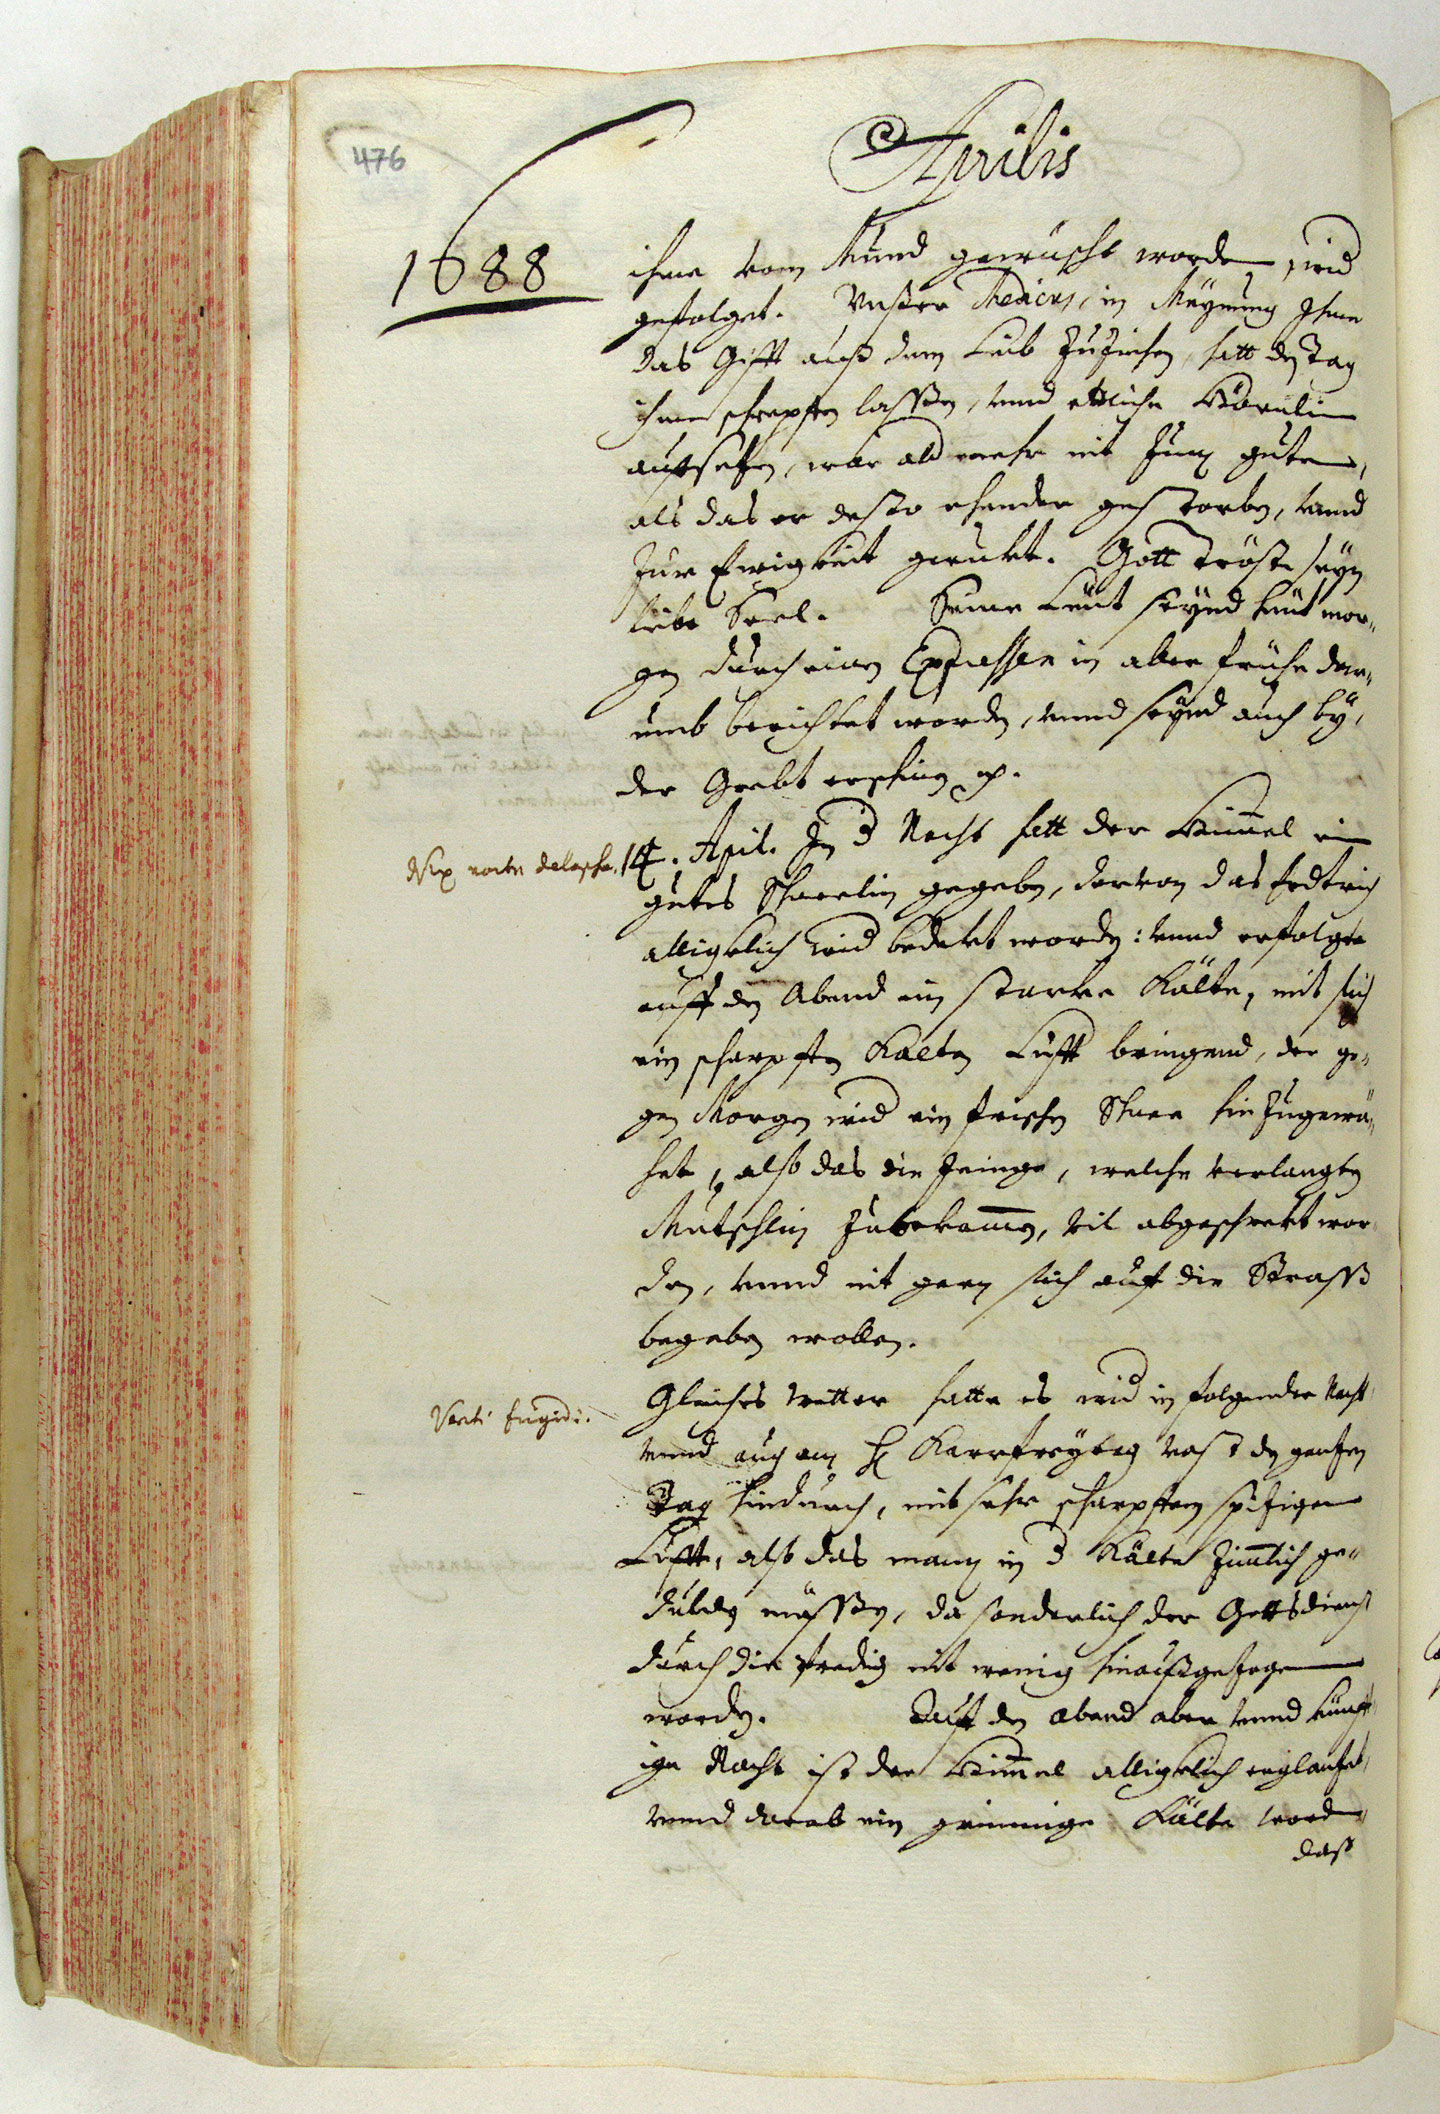 476
Aprilis
1688
ihme vom Mund gewüscht worden, wid
gefolget. Vnser Medicus, in Meynung Ihme
das Gifft auß dem Leib zuziehen, hatt den Tag
ihme schrepffen lassen, vnnd ettliche Hörnlin
auffsetzen, war als mehr nit zum guten,
als das er desto ehender gestorben, vnnd
zur Ewigkeit geruckt. Gott tröste seyn
liebe Seel. Seine Leüt seynd heüt mor-
gen durch einen Expressen in aller frühe dar-
umb berichtet worden, vnnd seynd auch by
der Grebt erschinen
Nix nocte delapsa.
14. April. In der Nacht hatt der Himmel ein
gutes Schneelin gegeben, darvon das Erdtrich
alligklich wid bedekt worden: vnnd erfolgte
auff den Abend ein starke Kälte, mit sich
ein scharpffen kalten Lufft bringend, der ge-
gen Morgen wid ein frischen Schnee hinzugewä-
het, also das die Jeinge, welche verlangten
Mutschlin zubekommen, vil abgeschrekt wor-
den, vnnd nit gern sich auff die Strass
begeben wollen.
Venti frigidi.
Gleiches Wetter hatte es wid in folgender Nacht
vnnd auch am H. Karrfreytag vast den gantzen
Tag hindurch, mit sehr scharpffem spitzigem
Lufft, also das mann in der Kälte zimmlich ge-
dulden müssen, da sonderlich der Gottsdienst
durch die Predig nit wenig hinaußgezogen
worden. Auff den Abend aber vnnd künfft-
ige Nacht ist der Himmel alligklich
vnnd darab ein grimmige Kälte worden,
daß